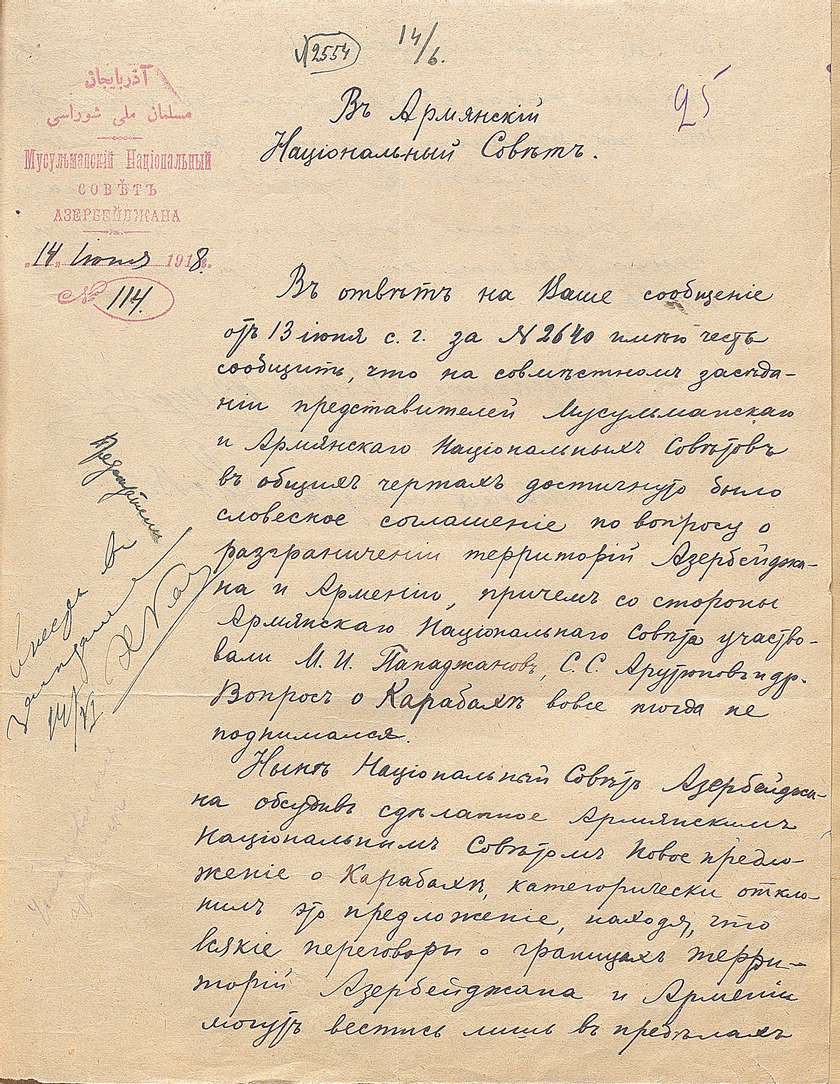 № 2554
14/6.
95
Въ Армянскій
Національный Совѣтъ.
آذربایجان
مسلمان ملی شوراسی
Мусульманскій Національный
СОВѢТЪ
АЗЕРБЕЙДЖАНА
„14„ Іюня 1918г.
№ 114.
Въ отвѣтъ на Ваше сообщеніе
отъ 13 іюня с. г. за № 2640 имѣю честь
сообщить, что на совмѣстномъ засѣда-
ніи представителей Мусульманскаго
и Армянскаго Національныхъ Совѣтовъ
въ общихъ чертахъ достигнуто было
словесное соглашеніе по вопросу о
разграниченіи территорій Азербейджа-
на и Арменіи, причемъ со стороны
Армянскаго Національнаго Совѣта участво-
вали М. И. Пападжановъ, С. С. Арутюновъ и др.
Вопросъ о Карабахѣ вовсе тогда не
поднимался.
Нынѣ Національный Совѣтъ Азербейджа-
на обсудивъ сдѣланное Армянскимъ
Національнымъ Совѣтомъ новое предло-
женіе о Карабахѣ, категорически откло-
нилъ это предложеніе, находя, что
всякіе переговоры о границахъ терри-
торій Азербейджана и Арменіи
могутъ вестись лишь въ предѣлахъ
14/VI